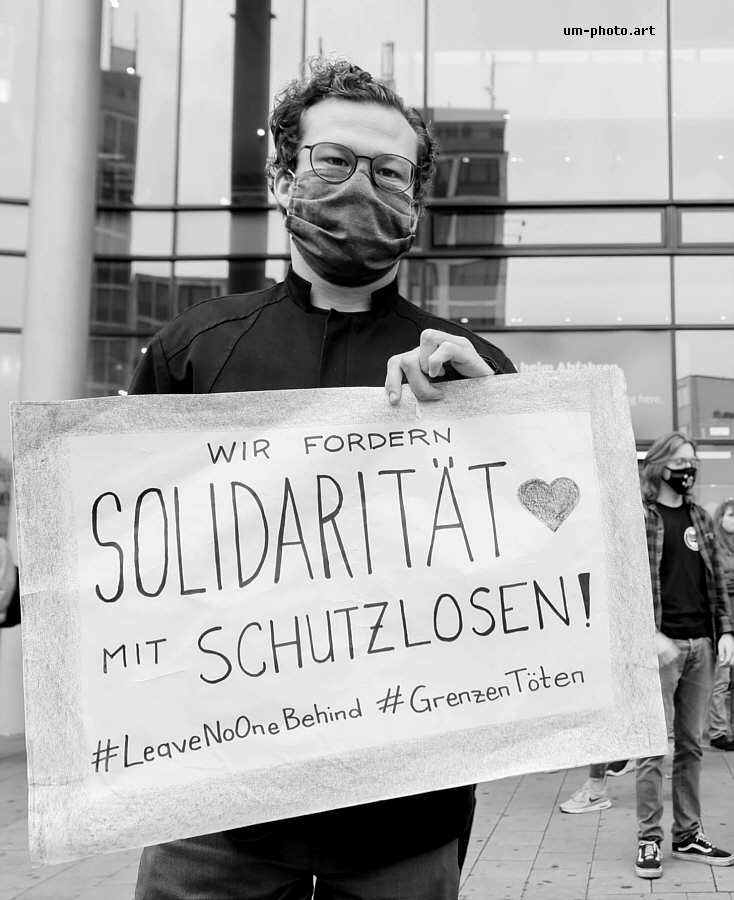 um-photo.art
beim Abfahren
g here.
WIR FORDERN
SOLIDARITÄT
MIT SCHUTZLOSEN!
#LeaveNoOneBehind #GrenzenTöten